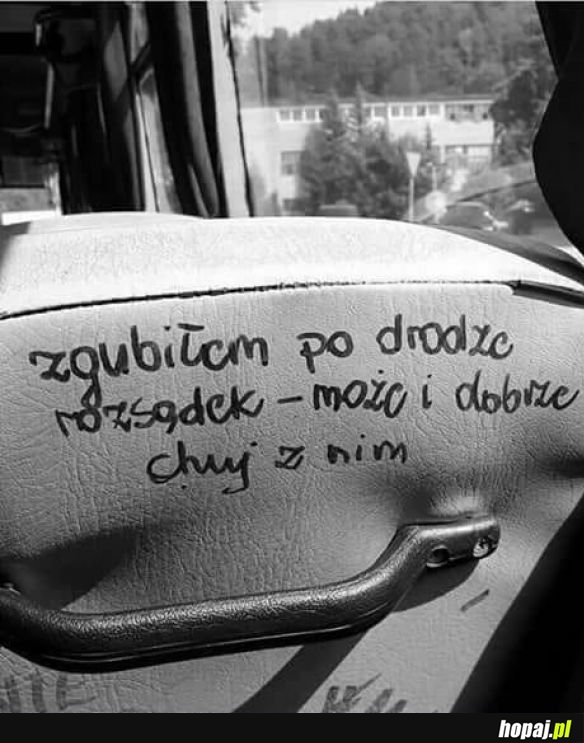 zgubiłem po drodze
rozsądek - może i dobrze
chuj z nim
hopaj.pl